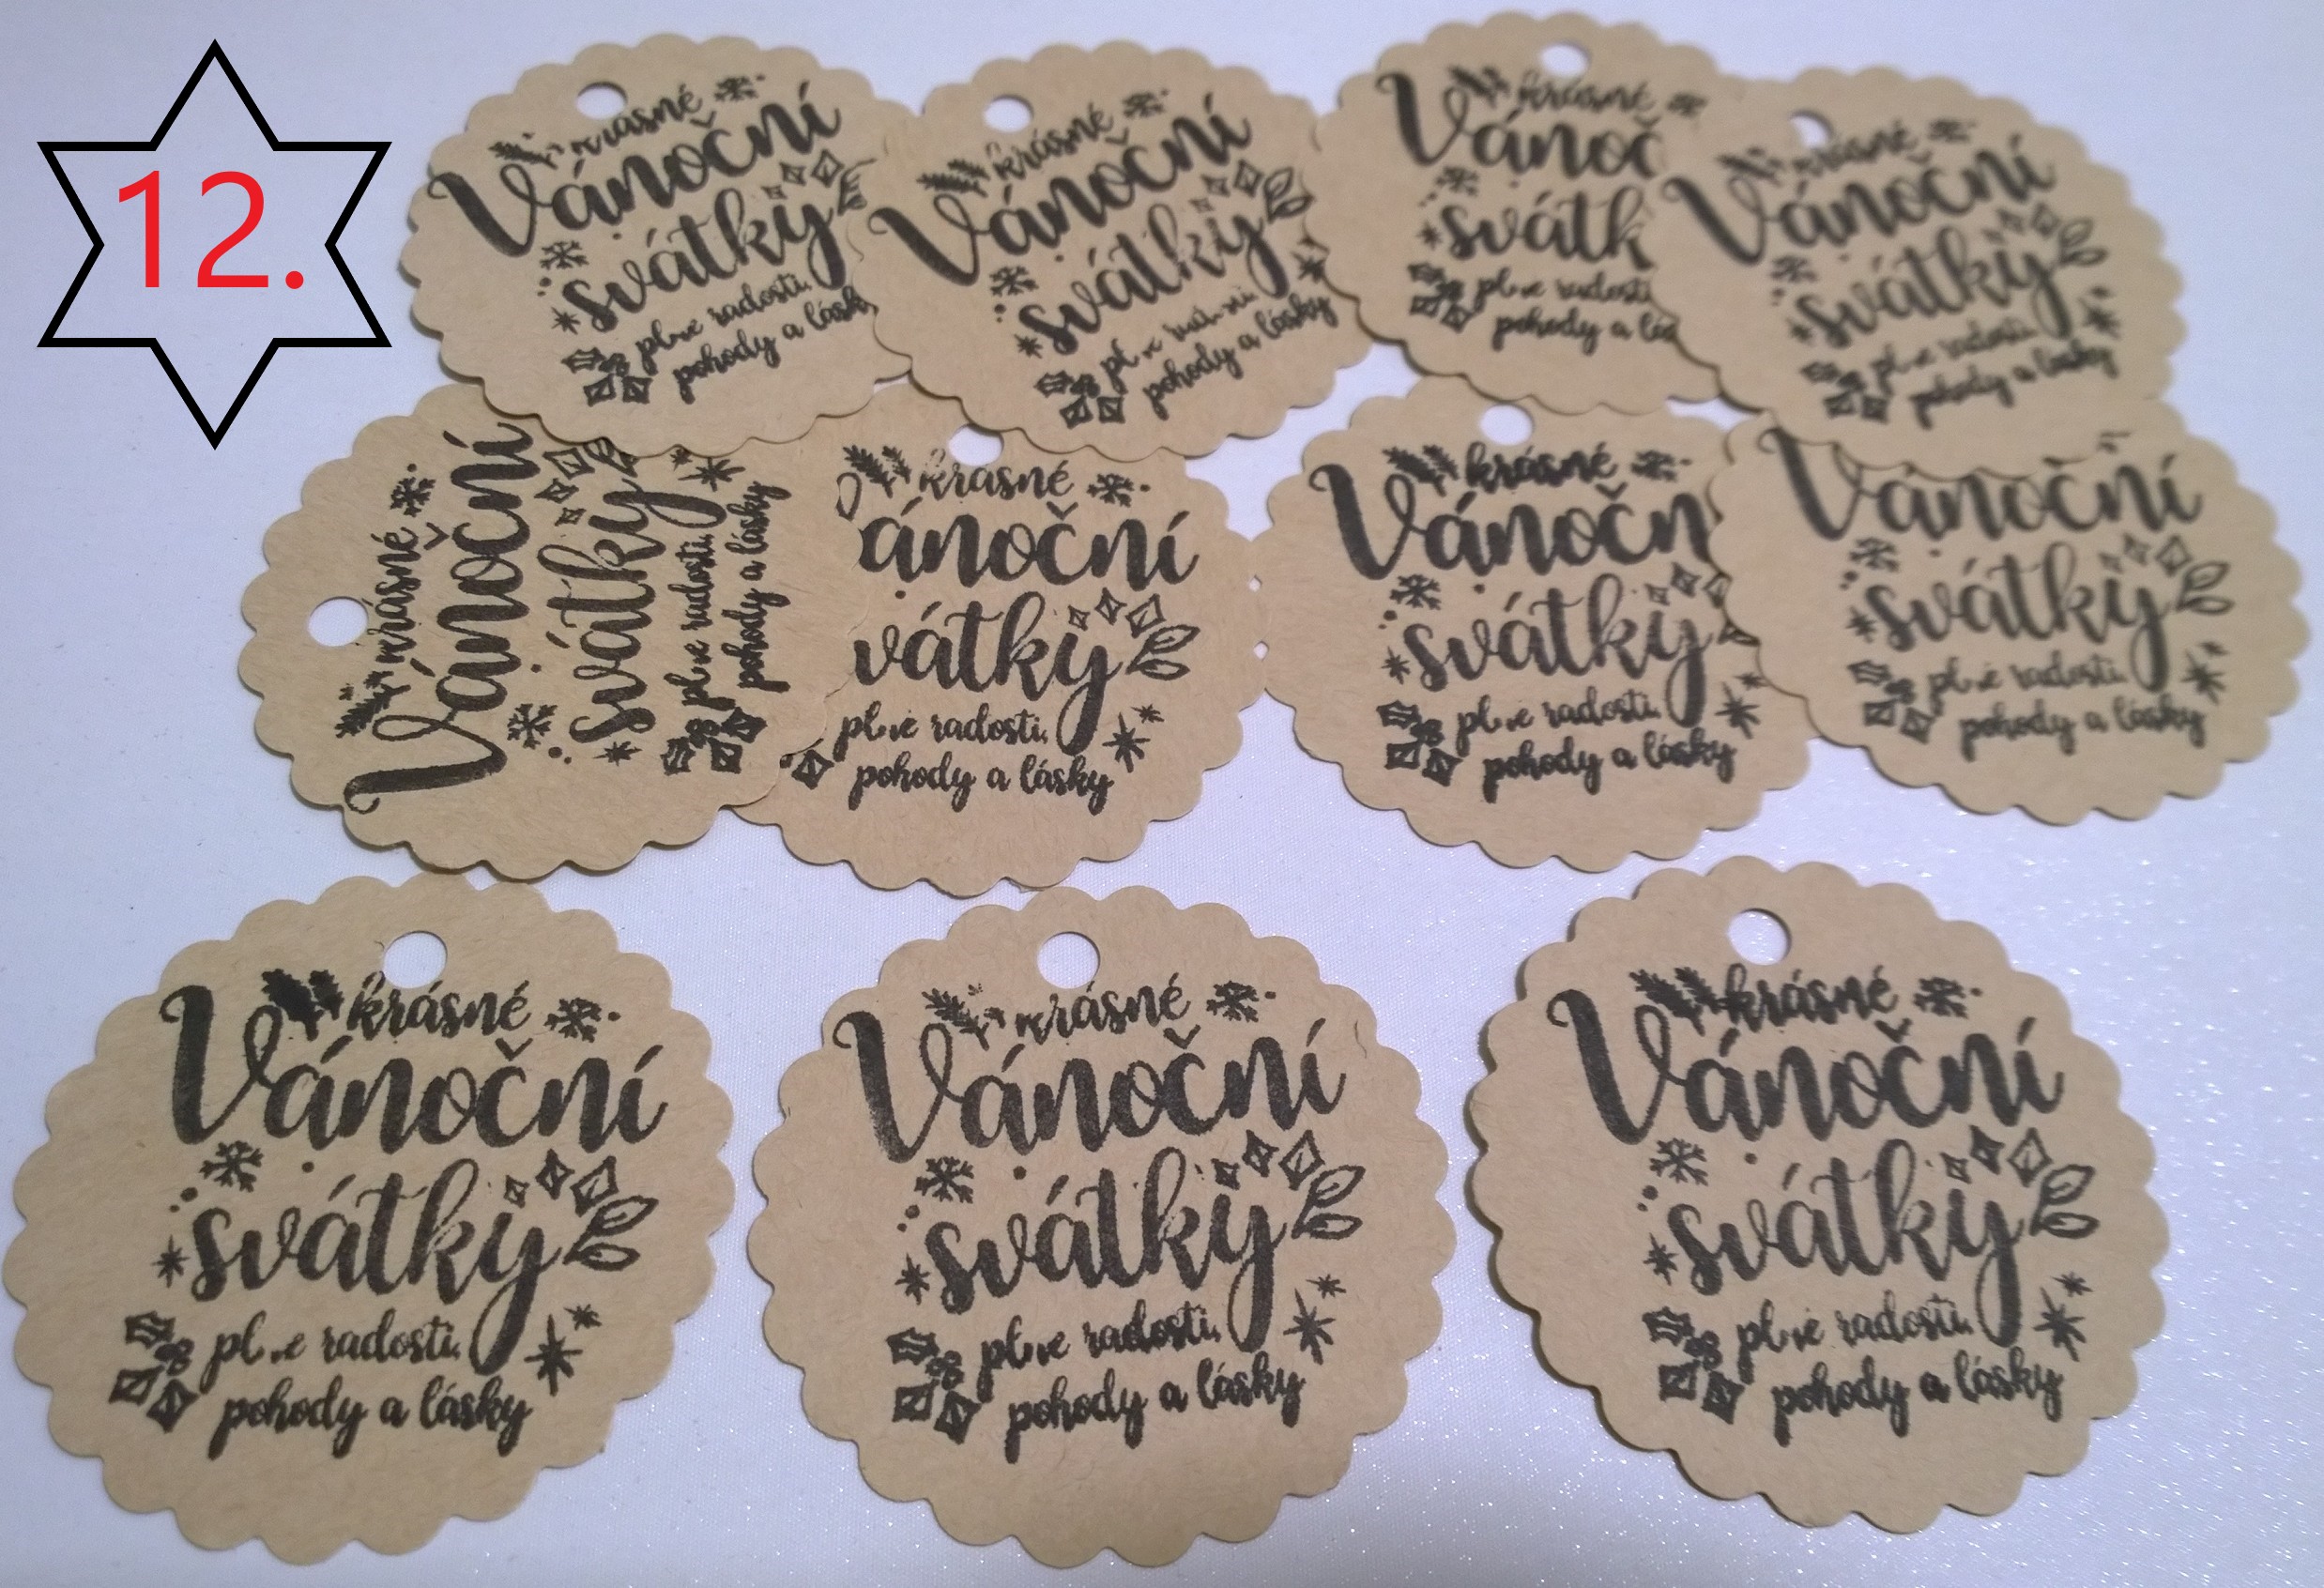 12.
krásné
Vánoční
svátky
plné radosti,
pohody a lásk
krásné
Vánoční
svátky
plné radosti
pohody a lásky
krásné
Vánoč
svátk
plné radosti
pohody a lás
krásné
Vánoční
svátky
plné radosti,
pohody a lásky
krásné
Vánoční
svátky
plné radosti,
pohody a lásky
krásné
ánoční
vátky
plné radosti,
pohody a lásky
krásné
Vánočn
svátky
plné radosti,
pohody a lásky
Vánoční
svátky
plné radosti,
pohody a lásky
krásné
Vánoční
svátky
plné radosti,
pohody a lásky
krásné
Vánoční
svátky
plné radosti,
pohody a lásky
krásné
Vánoční
svátky
plné radosti,
pohody a lásky